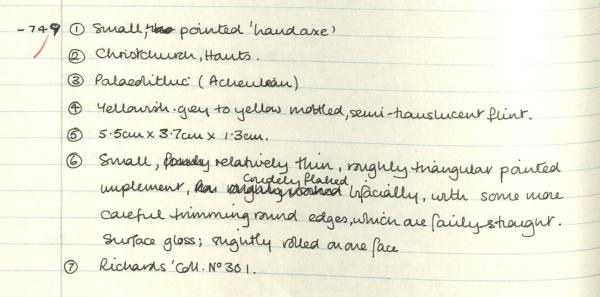 -749 ① Small, pointed 'handaxe'
② Christchurch, Hants.
③ Palaeolithic (Acheulean)
④ Yellowish-grey to yellow mottled, semi-translucent flint.
⑤ 5.5cm x 3.7cm x 1.3cm.
⑥ Small, relatively thin, roughly triangular pointed
implement, crudely flaked bifacially, with some more
careful trimming round edges, which are fairly straight.
Surface gloss; slightly rolled on one face
⑦ Richards' Coll. Nº 301.